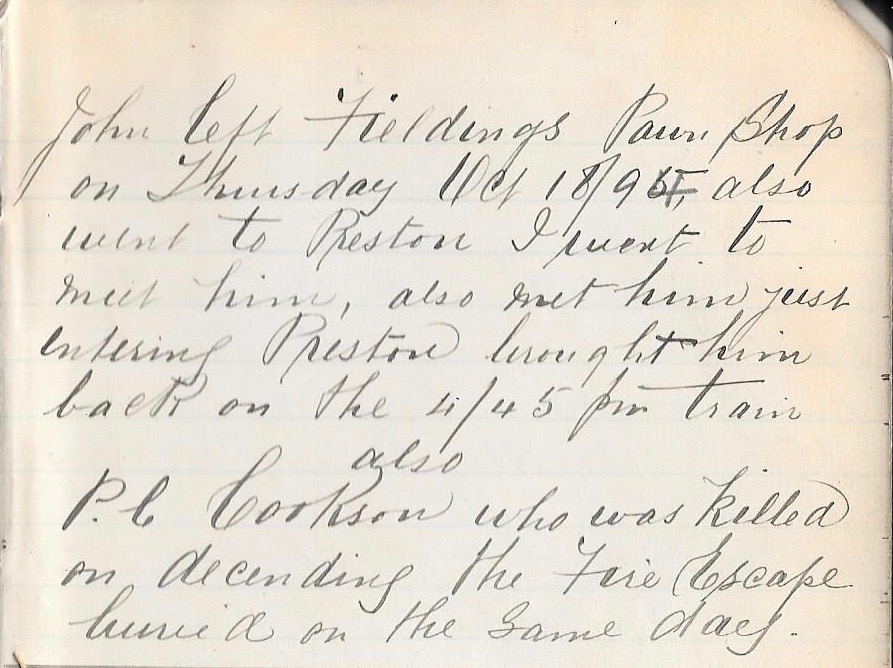 John left Fieldings Pawn Shop
on Thursday Oct 18/95, also
went to Preston I went to
meet him, also met him just
entering Preston brought him
back on the 4/45 pm train
also
P.C Cookson who was killed
on decending the Fire Escape
buried on the same day.